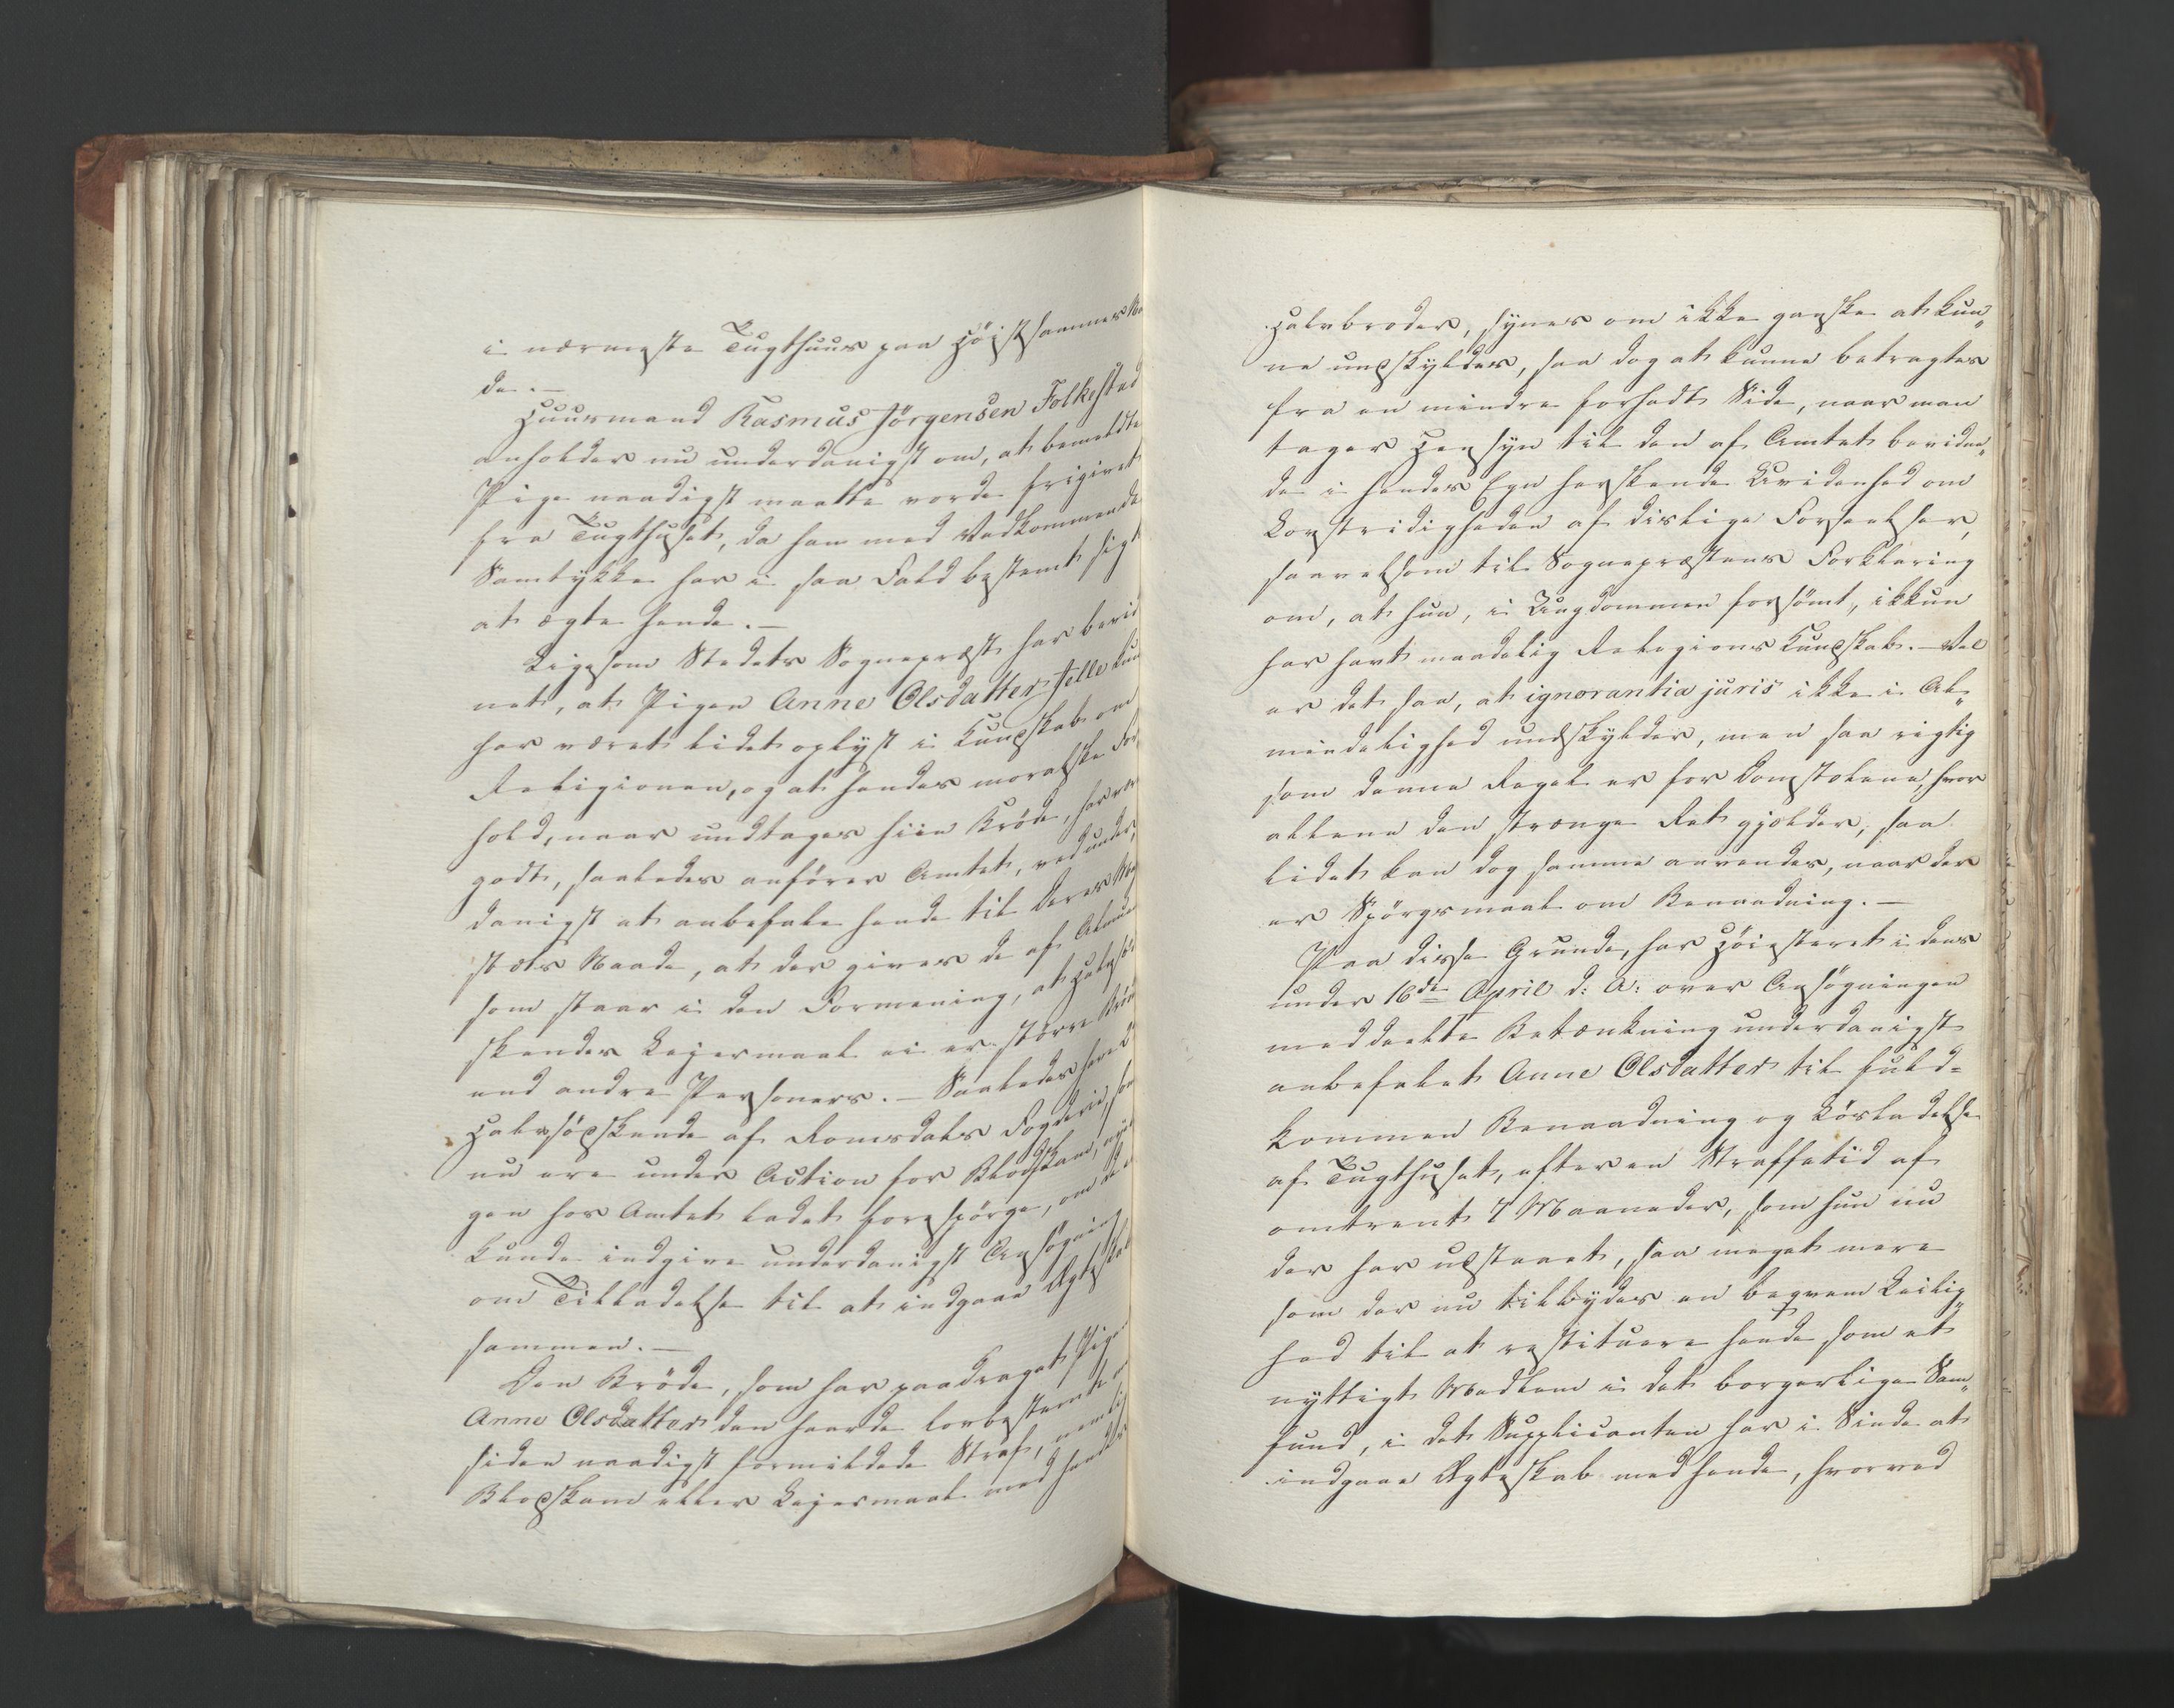 i nærmeste Tugthuus paa Høistsammes Naa
de. —
Huusmand Rasmus Jörgensen Folkestad
anholder nu underdanigst om, at bemeldte
Pige naadigst maatte vorde frigivet
fra Tugthuset, da han med Vedkommende
Samtykke har i saa Fald bestemt sig
at ægte hende. —
Ligesom Stedets Sognepræst har bevid
net, at Pigen Anne Olsdatter kun
har været lidet oplyst i Kundskab om
Religionen, og at hendes moralske For
hold, naar undtages hiin Brøde, har vær
godt, saaledes anfører Amtet, ved under
danigst at anbefale hende til Deres Ma
stæts Naade, at der gives de af Almue
som staar i den Formening, at Halvsø
skendes Leiermaal ei er større Brøde
end andre Personers. — Saaledes have 2
Halvsøskende af Romsdals Fogderie, som
nu ere under Action for Blodskam,
gen hos Amtet ladet forespørge, om de
kunde indgive underdanigst Ansøgning
om Tilladelse til at indgaae Ægteskab
sammen. —
Den Brøde, som har paadraget Pige
Anne Olsdatter den haarde lovbestemte
siden naadigst formildede Straf, nemlig
Blodskam eller Leiermaal med hendes
Halvbroder, synes om ikke ganske at kun„
ne undskyldes, saa dog at kunne betragtes
fra en mindre forhadt Side, naar man
tager Hensyn til den af Amtet beviden„
de i hendes Egn herskende Uvidenhed om
Lovstridigheden af dislige Forseelser,
saavelsom til Sognepræstens Forklaring
om, at hun, i Ungdommen forsömt, ikkun
har havt maadelig Religions Kundskab. — Vel
er det saa, at ignorantia juris ikke i Al„
mindelighed undskylder, men saa rigtig
som denne Regel er for Domstolene, hvor
allene den strænge Ret gjælder, saa
lidet kan dog samme anvendes, naar der
er Spörgsmaal om Benaadning. —
Paa disse Grunde, har Höiesteret i dens
under 16de April d: A: over Ansögningen
meddeelte Betænkning underdanigst
anbefalet Anne Olsdatter til fuld=
kommen Benaadning og Lösladelse
af Tugthuset, efter en Straffetid af
omtrent 7 Maaneder, som hun nu
der har udstaaet, saa meget mere
som der nu tilbydes en beqvem Leilig„
hed til at restituere hende som et
nyttigt Medlem i det borgerlige Sam„
fund, i det Supplicanten har i Sinde at
indgaae Ægteskab med hende, hvorved